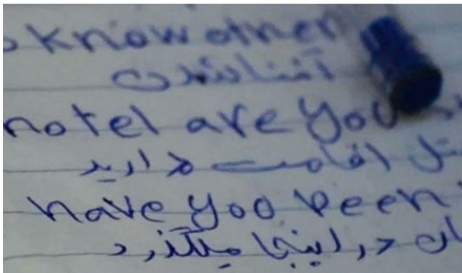 know other
آشنا شدن
hotel are you
تل اقامت دارید
have yoo been
ان در اینجا میگذرد